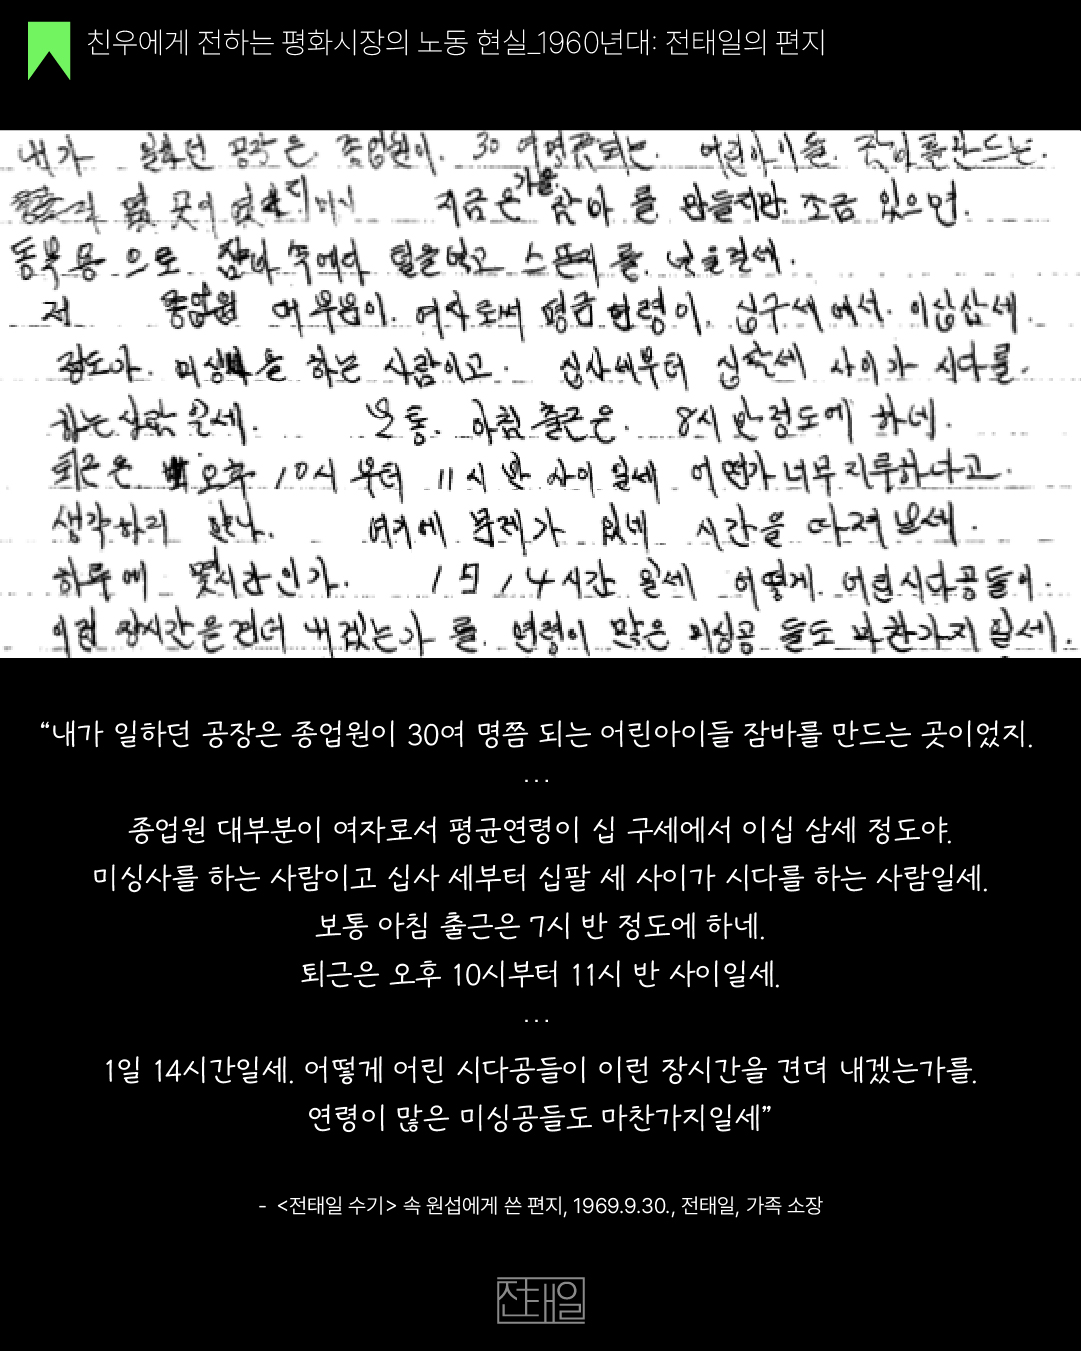 친우에게 전하는 평화시장의 노동 현실_1960년대: 전태일의 편지
내가 일하던 공장은 종업원이. 30 여명쯤되는. 어린아이들 잠바를만드는.
지금은 가을 잠바 를 만들지만. 조금 있으면.
동복용 으로 잠바 속에다 털을넣고 스폰지를. 넣을걸세.
저 종업원 대부분이. 여자로써 평균연령이. 십구세에서. 이십삼세.
정도가. 미싱사을 하는 사람이고. 십사세부터 십팔세 사이가 시다를.
하는사람일세. 보통. 아침출근은. 8시 반정도에 하네.
퇴근은 오후 10시 부터 11시 반 사이 일세 어떤가 너무 지루하다고.
생각하지 않나. 여기에 문제가 있네 시간을 따져 보세.
하루에 몇시간인가. 1日 14시간 일세 어떻게 어린시다공들이.
이런 장시간을견뎌 내겠는가 를. 연령이 많은 미싱공 들도 마찬가지일세.
“내가 일하던 공장은 종업원이 30여 명쯤 되는 어린아이들 잠바를 만드는 곳이었지.
…
종업원 대부분이 여자로서 평균연령이 십 구세에서 이십 삼세 정도야.
미싱사를 하는 사람이고 십사 세부터 십팔 세 사이가 시다를 하는 사람일세.
보통 아침 출근은 7시 반 정도에 하네.
퇴근은 오후 10시부터 11시 반 사이일세.
…
1일 14시간일세. 어떻게 어린 시다공들이 이런 장시간을 견뎌 내겠는가를.
연령이 많은 미싱공들도 마찬가지일세”
- <전태일 수기> 속 원섭에게 쓴 편지, 1969.9.30., 전태일, 가족 소장
전태일